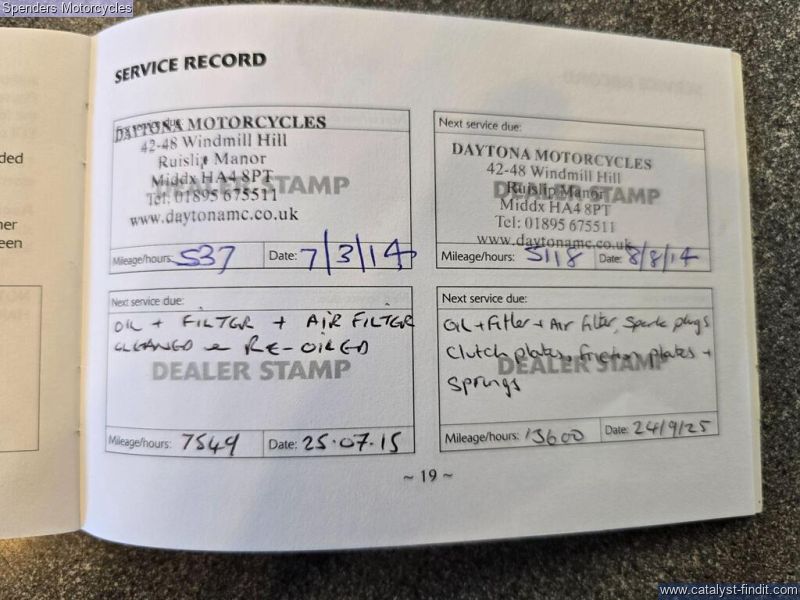 Spenders Motorcycles
SERVICE RECORD
Next service due:
DAYTONA MOTORCYCLES
42-48 Windmill Hill
Ruislip Manor
Middx HA4 8PT
Tel: 01895 675511
www.daytonamc.co.uk
DEALER STAMP
Mileage/hours: 537 Date: 7/3/14
Next service due:
DAYTONA MOTORCYCLES
42-48 Windmill Hill
Ruislip Manor
Middx HA4 8PT
Tel: 01895 675511
www.daytonamc.co.uk
DEALER STAMP
Mileage/hours: 5118 Date: 8/8/14
Next service due:
OIL + FILTER + AIR FILTER
CLEANED & RE-OILED
DEALER STAMP
Mileage/hours: 7549 Date: 25.07.15
Next service due:
Oil + Filter + Air filter, Spark plugs
Clutch plates, friction plates +
Springs
DEALER STAMP
Mileage/hours: 13600 Date: 24/9/25
~ 19 ~
www.catalyst-findit.com